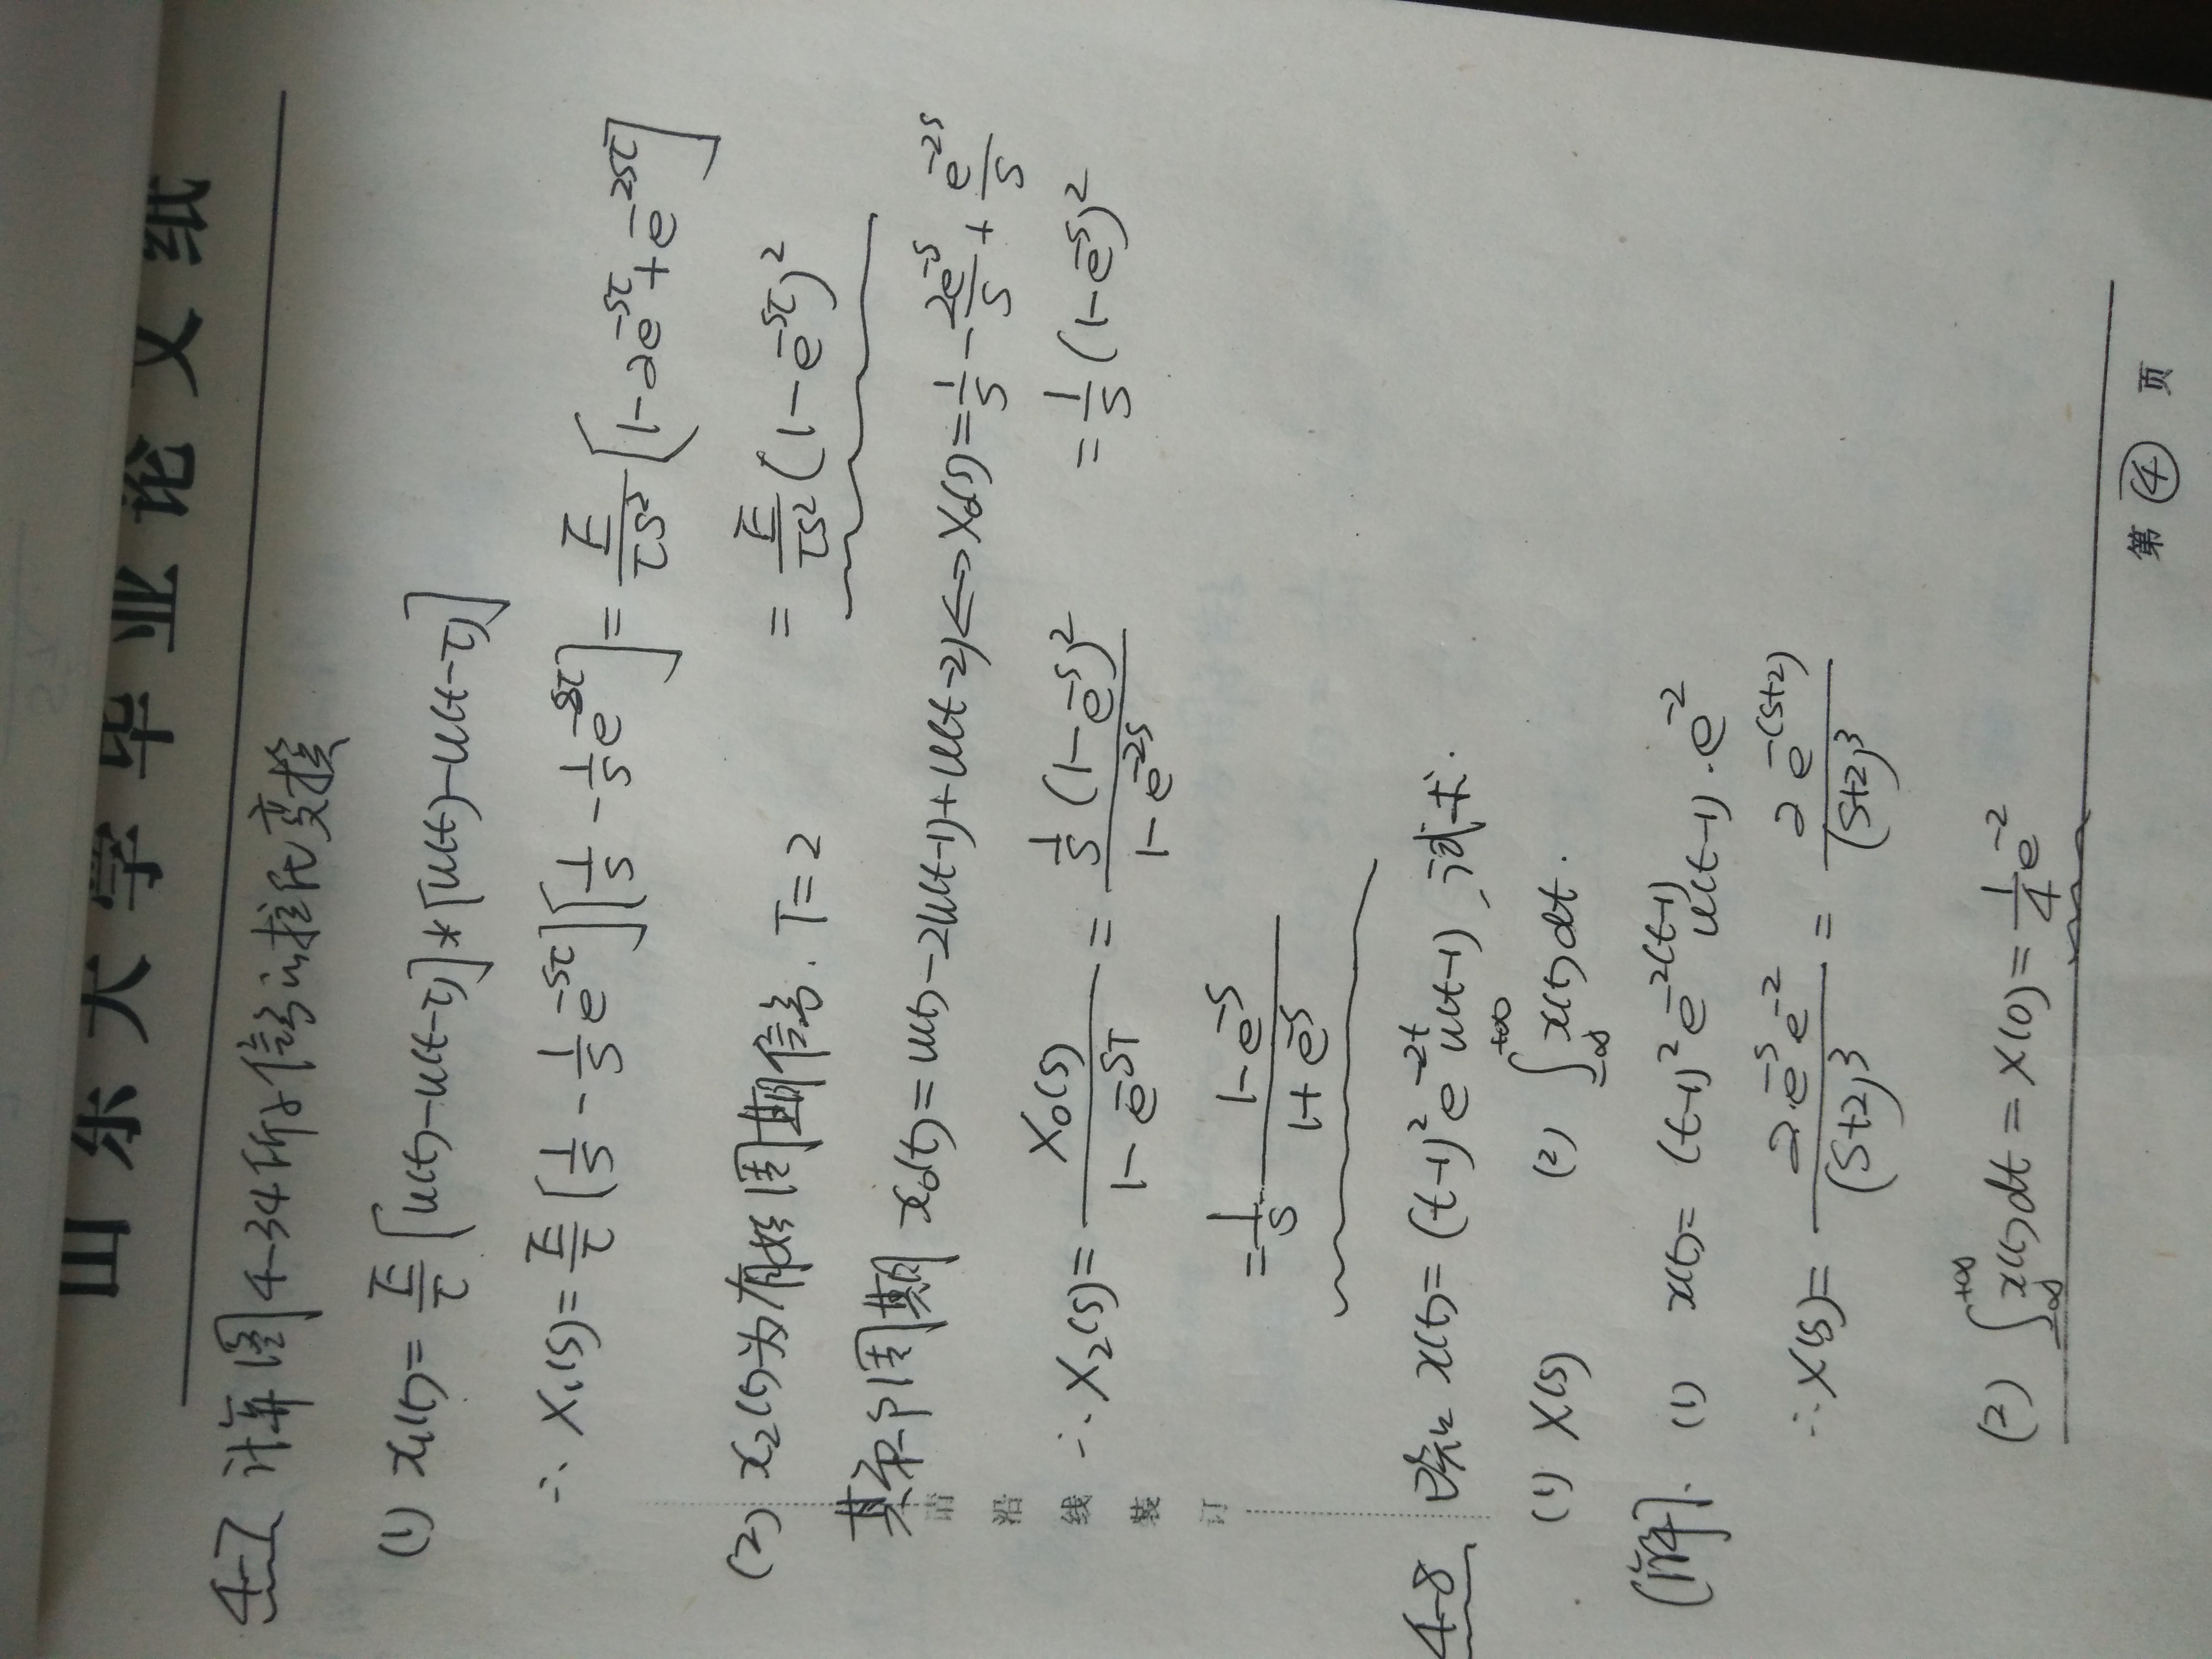 山东大学毕业论文纸
4-7 计算图4-34所示信号的拉氏变换
(1) x₁(t)= E/τ [u(t)-u(t-τ)]*[u(t)-u(t-τ)]
∴ X₁(s)= E/τ [1/s - 1/s e^{-sτ}][1/s - 1/s e^{-sτ}] = E/(τs²) [1-2e^{-sτ}+e^{-2sτ}]
= E/(τs²) (1-e^{-sτ})²
(2) x₂(t)为有始周期信号. T=2
其第一个周期 x₀(t)=u(t)-2u(t-1)+u(t-2) ⟷ X₀(s)= 1/s - 2e^{-s}/s + e^{-2s}/s
= 1/s (1-e^{-s})²
∴ X₂(s)= X₀(s)/(1-e^{-sT}) = 1/s (1-e^{-s})²/(1-e^{-2s})
= 1/s (1-e^{-s})/(1+e^{-s})
4-8 已知 x(t)= (t-1)² e^{-2t} u(t-1), 试求.
(1) X(s) (2) ∫_{-∞}^{+∞} x(t)dt.
[解]. (1) x(t)= (t-1)² e^{-2(t-1)} u(t-1)·e^{-2}
∴ X(s)= 2·e^{-s}e^{-2}/(s+2)³ = 2e^{-(s+2)}/(s+2)³
(2) ∫_{-∞}^{+∞} x(t)dt = X(0) = 1/4 e^{-2}
第 ④ 页
请沿线装订